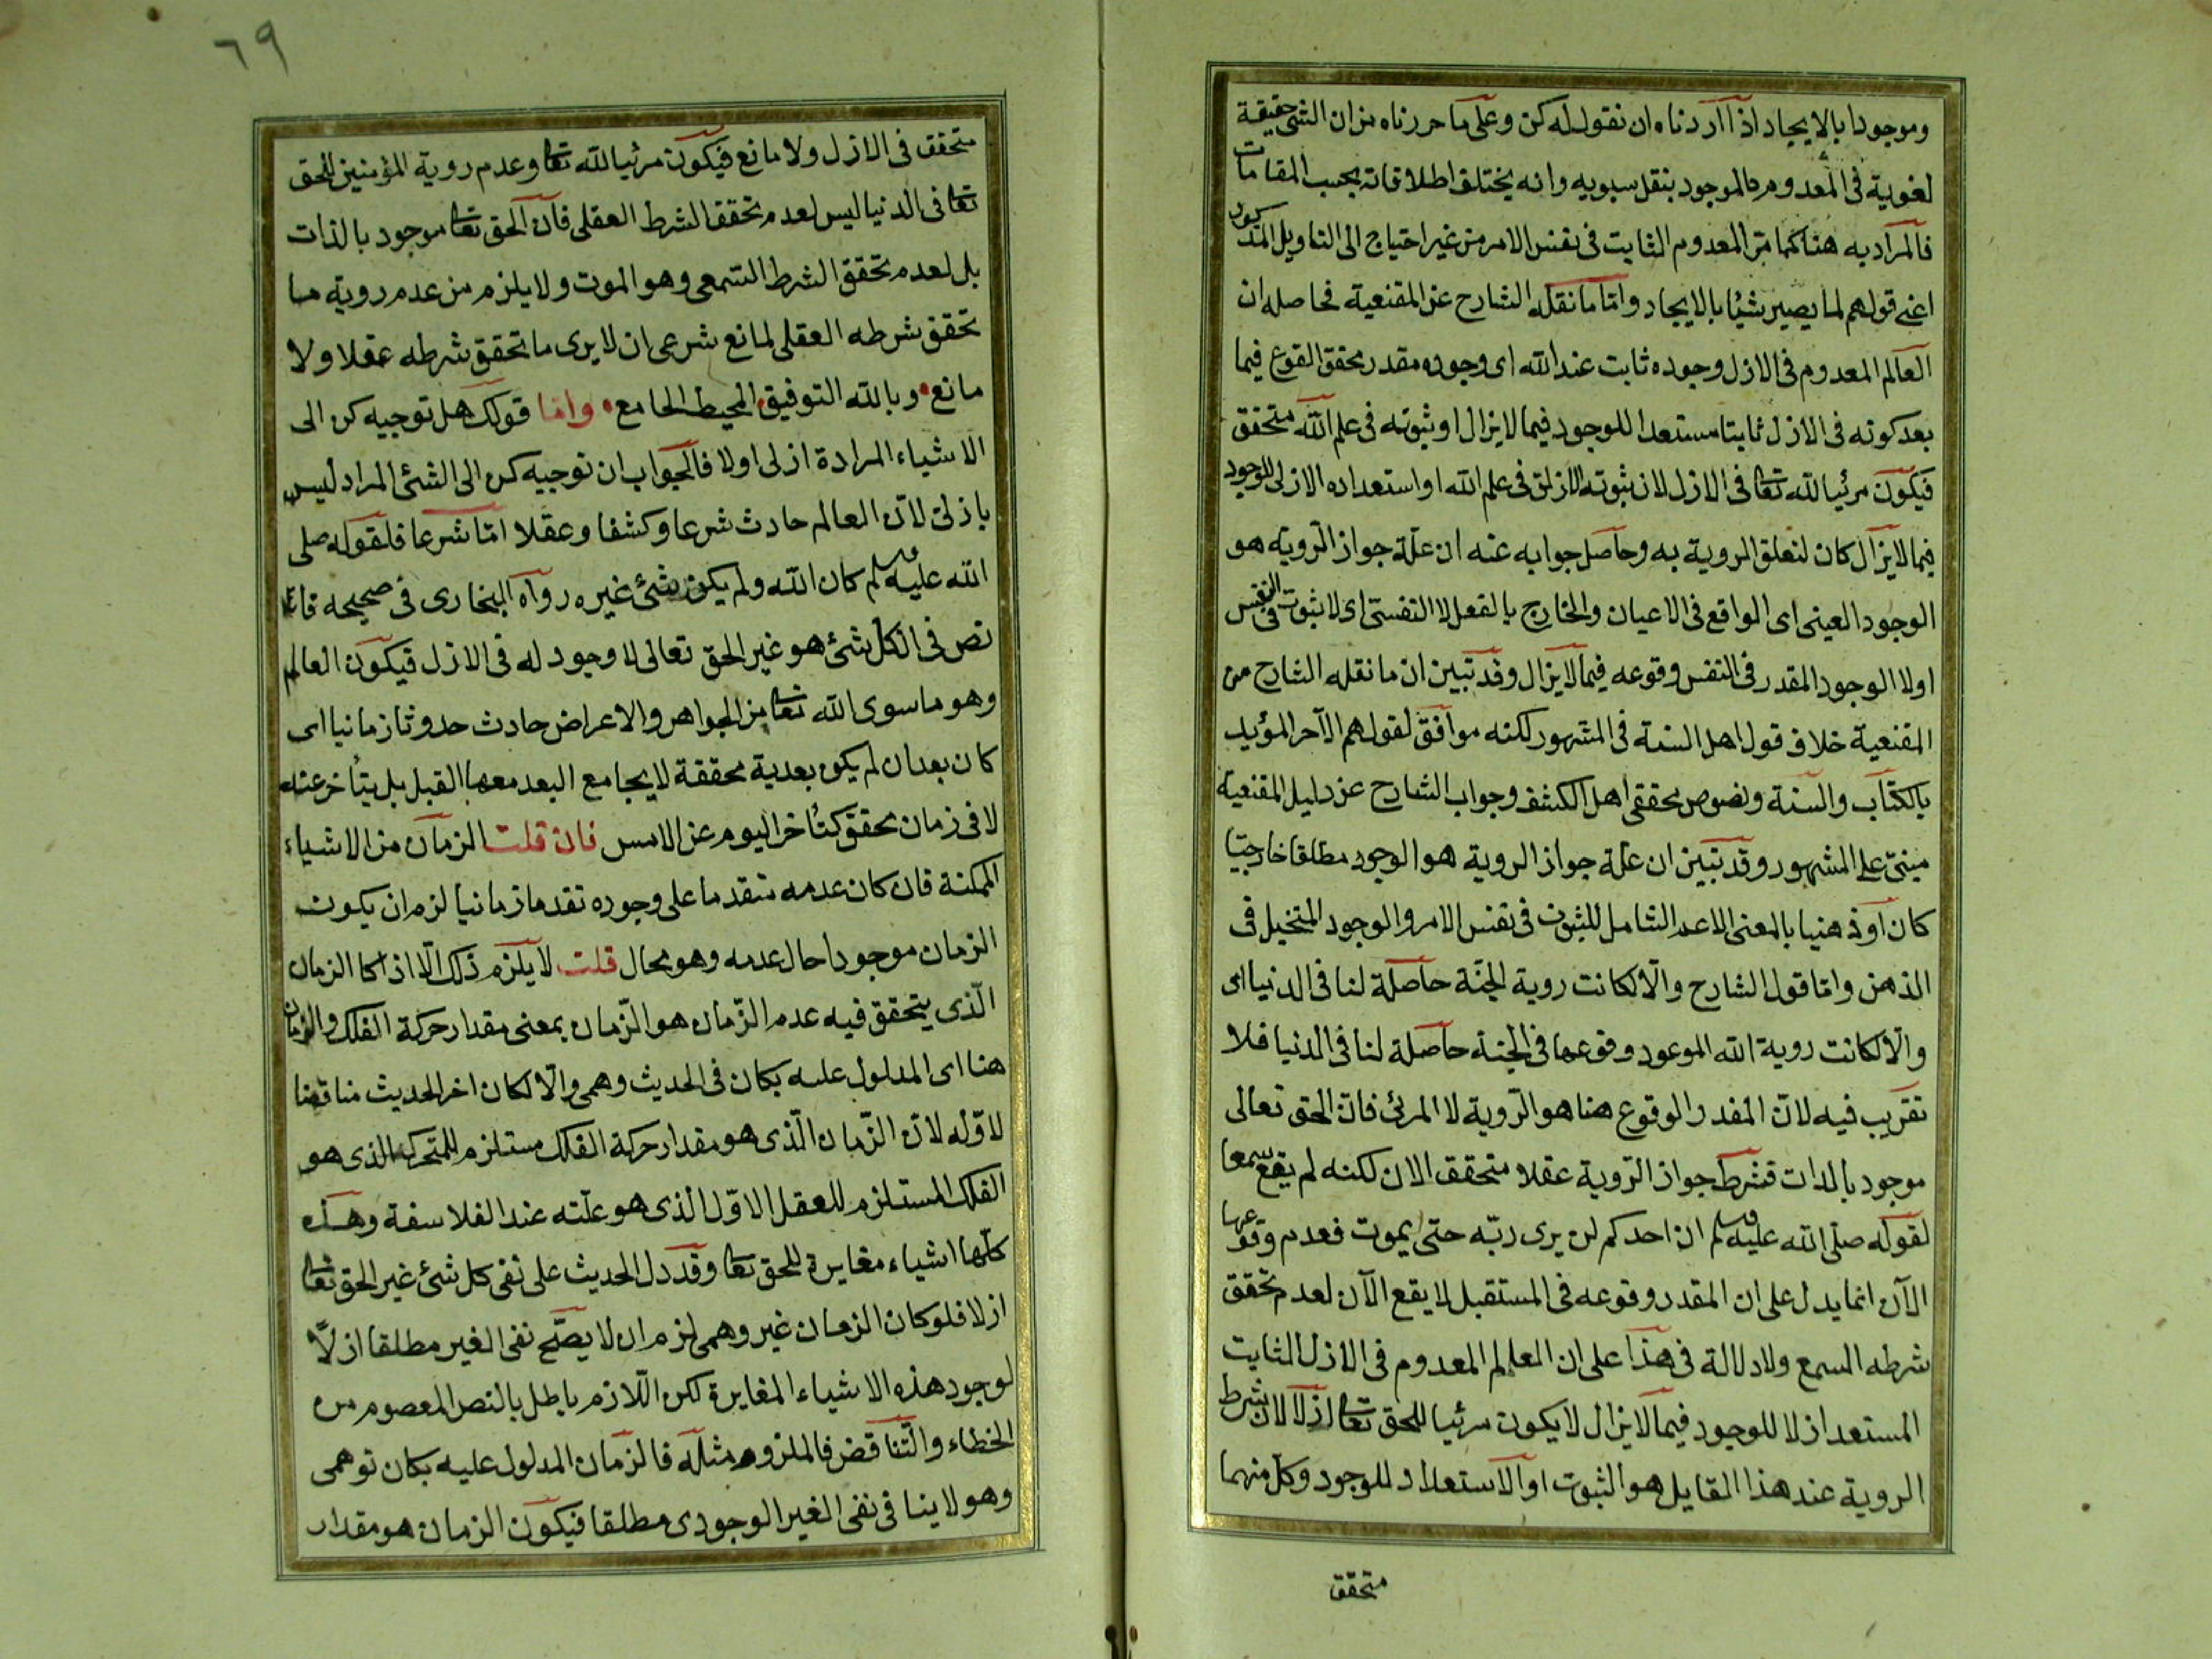 وموجودا بالايجاد اذا اردناه ان نقول له كن وعلى ما حررناه من ان الشئ حقيقة
لغوية في المعدوم والموجود بنقل سيبويه وانه يختلف اطلاقاته بحسب المقامات
فالمراد به هنا كما مر المعدوم الثابت في نفس الامر من غير احتياج الى التاويل المذكور
اعنى قولهم لما يصير شيئا بالايجاد واما ما نقله الشارح عن المقنعية فحاصله ان
العالم المعدوم في الازل وجوده ثابت عند الله اى وجوده مقدر محقق الوقوع فيما
بعد كونه في الازل ثابتا مستعدا للوجود فيما لا يزال او ثبوته في علم الله متحقق
فيكون مرئيا لله تعا في الازل لان ثبوته الازلى في علم الله او استعداده الازلى للوجود
فيما لا يزال كان لتعلق الروية به وحاصل جوابه عنه ان علة جواز الروية هو
الوجود العينى اى الواقع في الاعيان والخارج بالفعل لا النفسى اى لا ثبوت في النفس
اولا الوجود المقدر في النفس وقوعه فيما لا يزال وقد تبين ان ما نقله الشارح من
المقنعية خلاف قول اهل السنة في المشهور لكنه موافق لقولهم الآخر المؤيد
بالكتاب والسنة ونصوص محققى اهل الكشف وجواب الشارح عن دليل المقنعية
مبنى على المشهور وقد تبين ان علة جواز الروية هو الوجود مطلقا خارجيا
كان او ذهنيا بالمعنى الاعم الشامل للثبوت في نفس الامر والوجود المتخيل في
الذهن واما قول الشارح والا لكانت روية الجنة حاصلة لنا في الدنيا اى
والا لكانت روية الله الموعود وقوعها في الجنة حاصلة لنا في الدنيا فلا
تقريب فيه لان المقدر الوقوع هنا هو الروية لا المرئى فان الحق تعالى
موجود بالذات فشرط جواز الروية عقلا متحقق الان لكنه لم يقع سمعا
لقوله صلى الله عليه وسلم ان احدكم لن يرى ربه حتى يموت فعدم وقوعها
الآن انما يدل على ان المقدر وقوعه في المستقبل لا يقع الآن لعدم تحقق
شرطه السمع ولا دلالة في هذا على ان العالم المعدوم في الازل الثابت
المستعد ازلا للوجود فيما لا يزال لا يكون مرئيا للحق تعا ازلا لان شرط
الروية عند هذا القايل هو الثبوت او الاستعداد للوجود وكل منهما
متحقق
٦٩
متحقق في الازل ولا مانع فيكون مرئيا لله تعا وعدم روية المؤمنين للحق
تعا في الدنيا ليس لعدم تحقق الشرط العقلى فان الحق تعا موجود بالذات
بل لعدم تحقق الشرط السمعى وهو الموت ولا يلزم من عدم روية ما
تحقق شرطه العقلى لمانع شرعى ان لا يرى ما تحقق شرطه عقلا ولا
مانع وبالله التوفيق المحيط الجامع واما قولك هل توجيه كن الى
الاشياء المرادة ازلى اولا فالجواب ان توجيه كن الى الشئ المراد ليس
بازلى لان العالم حادث شرعا وكشفا وعقلا اما شرعا فلقوله صلى
الله عليه وسلم كان الله ولم يكن شئ غيره رواه البخارى في صحيحه فانه
نص في ان كل شئ هو غير الحق تعالى لا وجود له في الازل فيكون العالم
وهو ما سوى الله تعا من الجواهر والاعراض حادث حدوثا زمانيا اى
كان بعد ان لم يكن بعدية محققة لا يجامع البعد معها القبل بل يتأخر عنه
لا في زمان محقق كتأخر اليوم عن الامس فان قلت الزمان من الاشياء
الممكنة فان كان عدمه متقدما على وجوده تقدما زمانيا لزم ان يكون
الزمان موجودا حال عدمه وهو محال قلت لا يلزم ذلك الا اذا كا الزمان
الذى يتحقق فيه عدم الزمان هو الزمان بمعنى مقدار حركة الفلك والزمان
هنا اى المدلول عليه بكان في الحديث وهمى والا لكان اخر الحديث مناقضا
لاوله لان الزمان الذى هو مقدار حركة الفلك مستلزم للمتحرك الذى هو
الفلك المستلزم للعقل الاول الذى هو علته عند الفلاسفة وهذه
كلها اشياء مغايرة للحق تعا وقد دل الحديث على نفى كل شئ غير الحق تعا
ازلا فلو كان الزمان غير وهمى لزم ان لا يصح نفى الغير مطلقا ازلا
لوجود هذه الاشياء المغايرة لكن اللازم باطل بالنص المعصوم من
الخطاء والتناقض فالملزوم مثله فالزمان المدلول عليه بكان توهمى
وهو لا ينافي نفى الغير الوجودى مطلقا فيكون الزمان هو مقدار